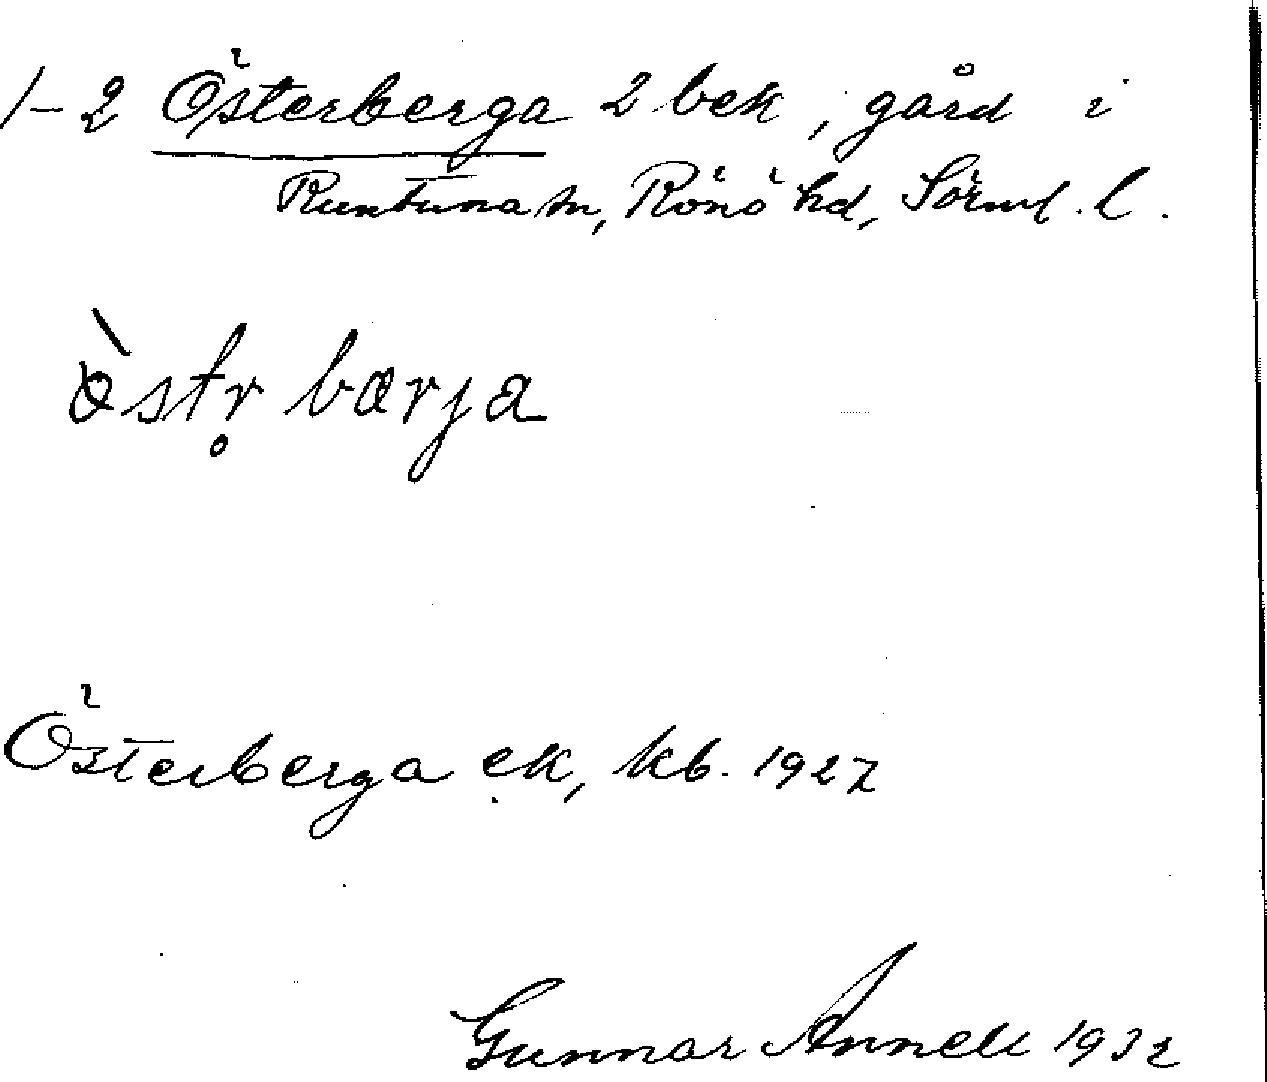 1-2 Österberga 2 bek, gård i
Runtuna sn, Rönö hd, Sörml. l.
òstr̥ bærja
Österberga ek, kb. 1927
Gunnar Annell 1932